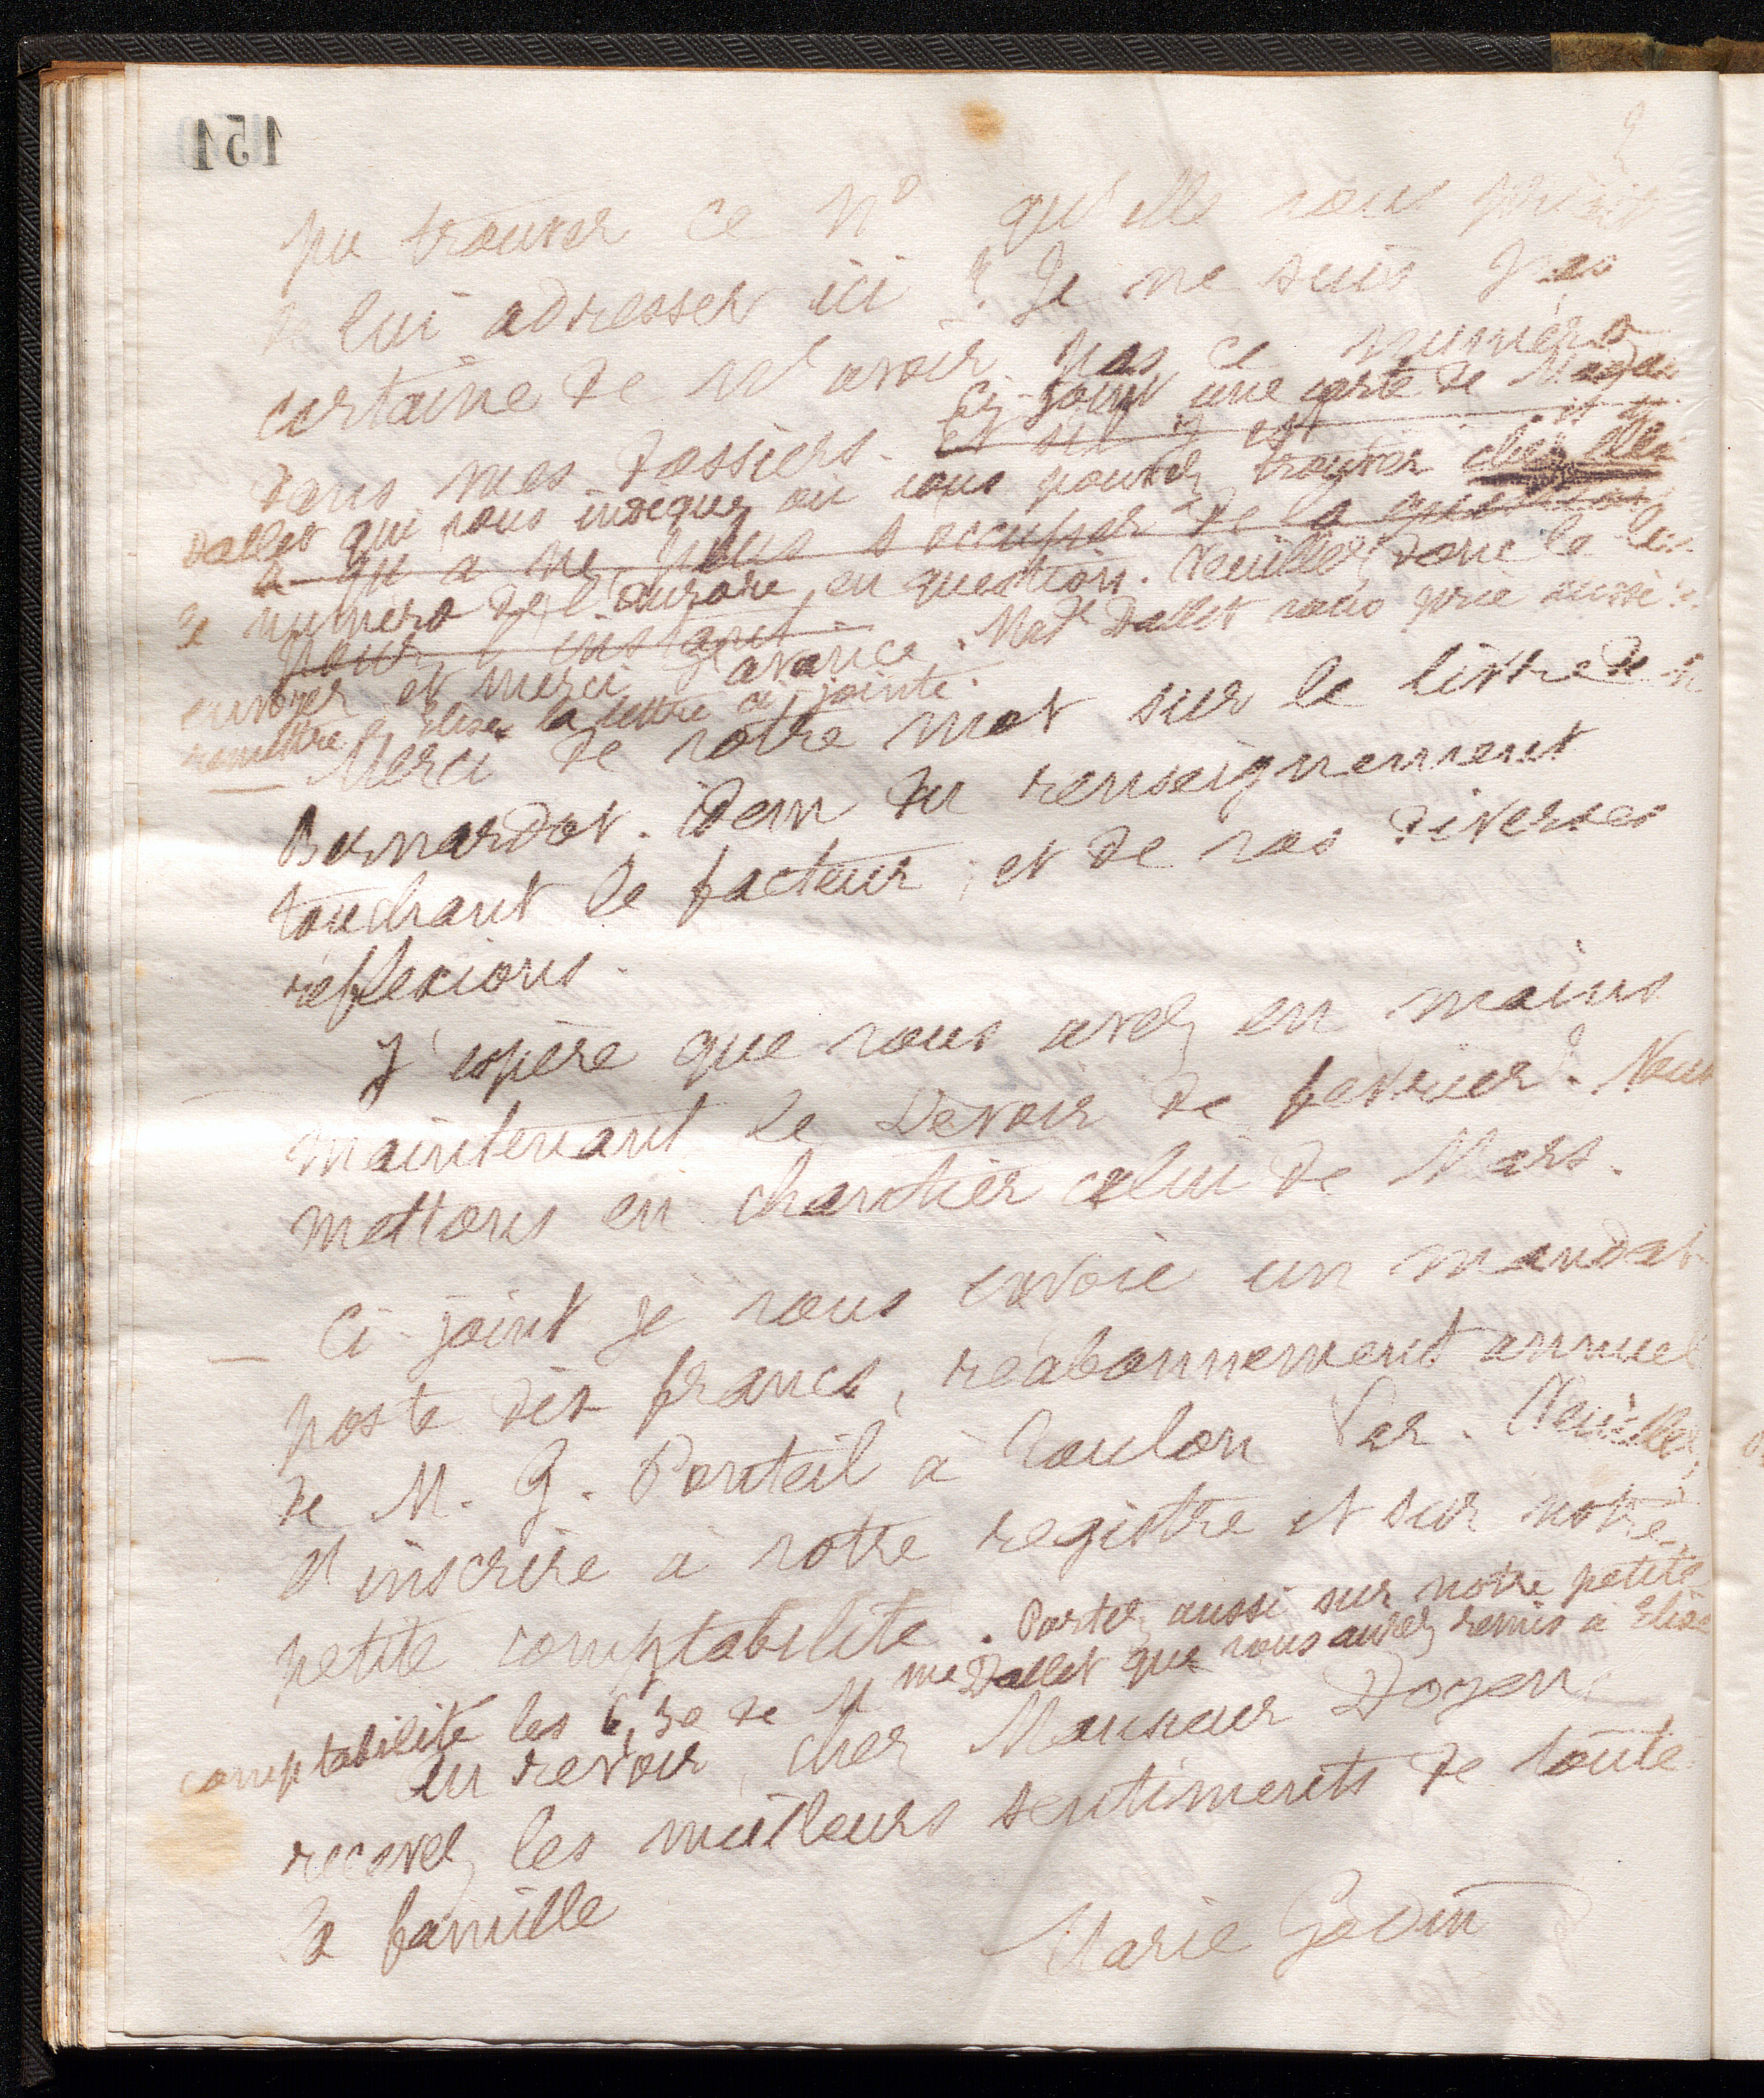 151
2
pu trouver ce No qu'elle vous priait
de lui adresser ici ? Je ne suis pas
certaine de n'avoir pas ce numéro
dans mes dossiers. Ci-joint une carte de Madame
et s'il y est
Dallet qui vous indique où vous pouvez trouver chez elle
qu'a ne plus s'occuper de la question
le numéro de l'Aurore en question. Veuillez donc le lui
pour l'instant
envoyer et merci d'avance. Made Dallet vous prie aussi de
remettre à Elise la lettre ci-jointe.
Merci de votre mot sur le livre de
Bernardot. Idem du renseignement
touchant le facteur ; et de vos diverses
réflexions.
J'espère que vous avez en mains
maintenant le Devoir de février ? Nous
mettons en chantier celui de Mars.
Ci-joint je vous envoie un mandat
poste dix francs, réabonnement annuel
de M. J. Ponteil à Toulon Var. Veuillez
l'inscrire à votre registre et sur notre
petite comptabilité. Portez aussi sur notre petite
comptabilité les 6,30 de Mme Dallet que vous aurez remis à Elise
Au revoir, cher Monsieur Doyen,
recevez les meilleurs sentiments de toute
la famille
Marie Godin